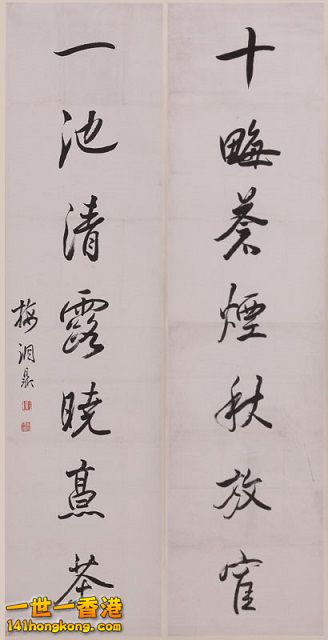 十畮蒼煙秋放寉
一池清露曉烹茶
梅調鼎
一世一香港
141hongkong.com